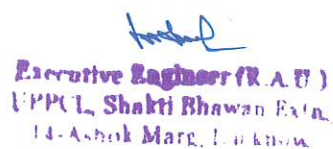 Executive Engineer (R.A.U)
UPPCL, Shakti Bhawan Extn.
14-Ashok Marg, Lucknow